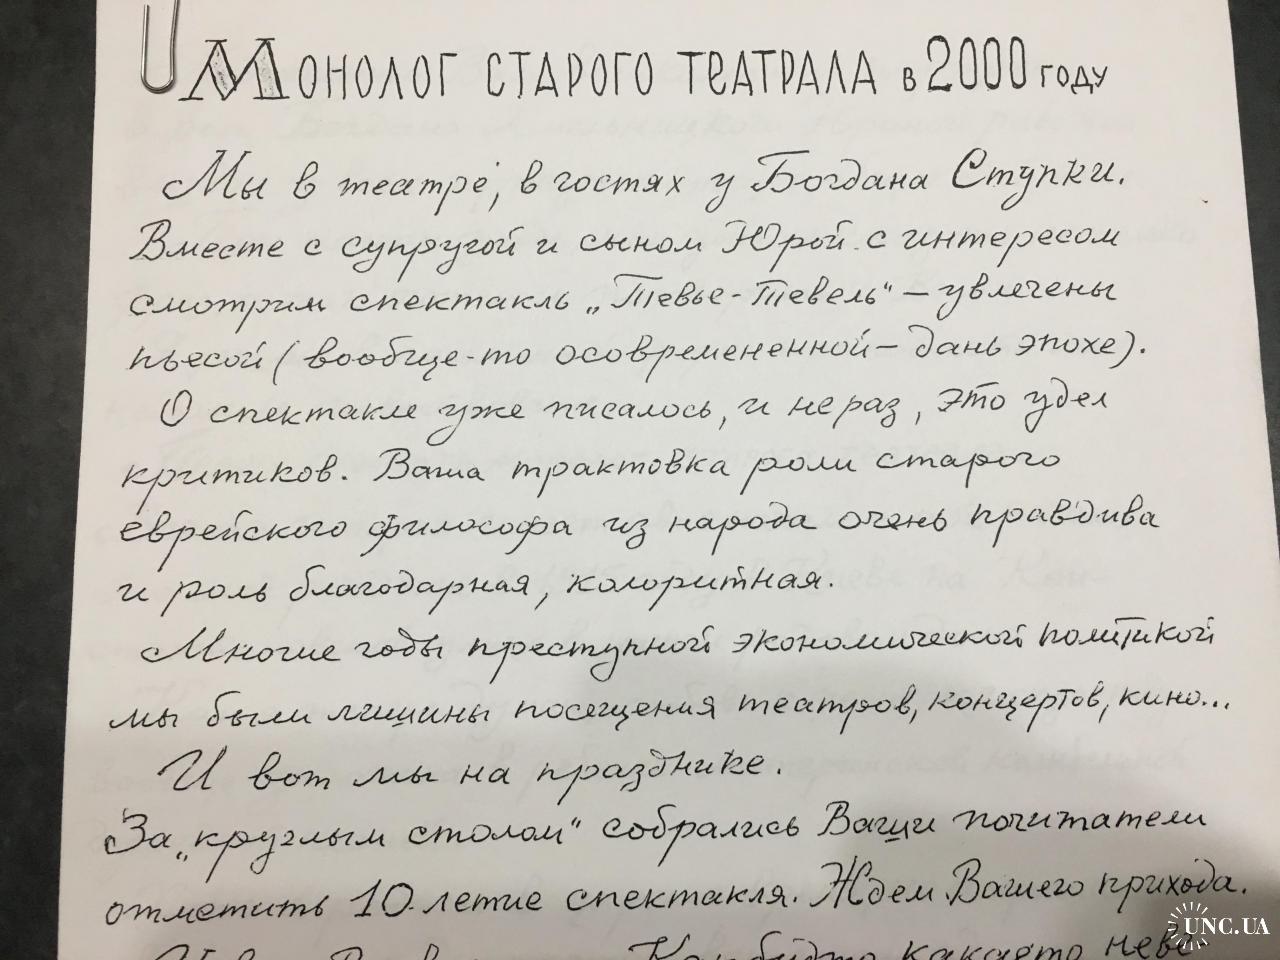 Монолог старого театрала в 2000 году
Мы в театре, в гостях у Богдана Ступки.
Вместе с супругой и сыном Юрой с интересом
смотрим спектакль „Тевье-Тевель“ – увлечены
пьесой (вообще-то осовремененной – дань эпохе).
О спектакле уже писалось, и не раз, это удел
критиков. Ваша трактовка роли старого
еврейского философа из народа очень правдива
и роль благодарная, колоритная.
Многие годы преступной экономической политикой
мы были лишины посещения театров, концертов, кино...
И вот мы на празднике.
За „круглым столом“ собрались Ваши почитатели
отметить 10-летие спектакля. Ждем Вашего прихода.
Как будто какая-то неве
UNC.UA